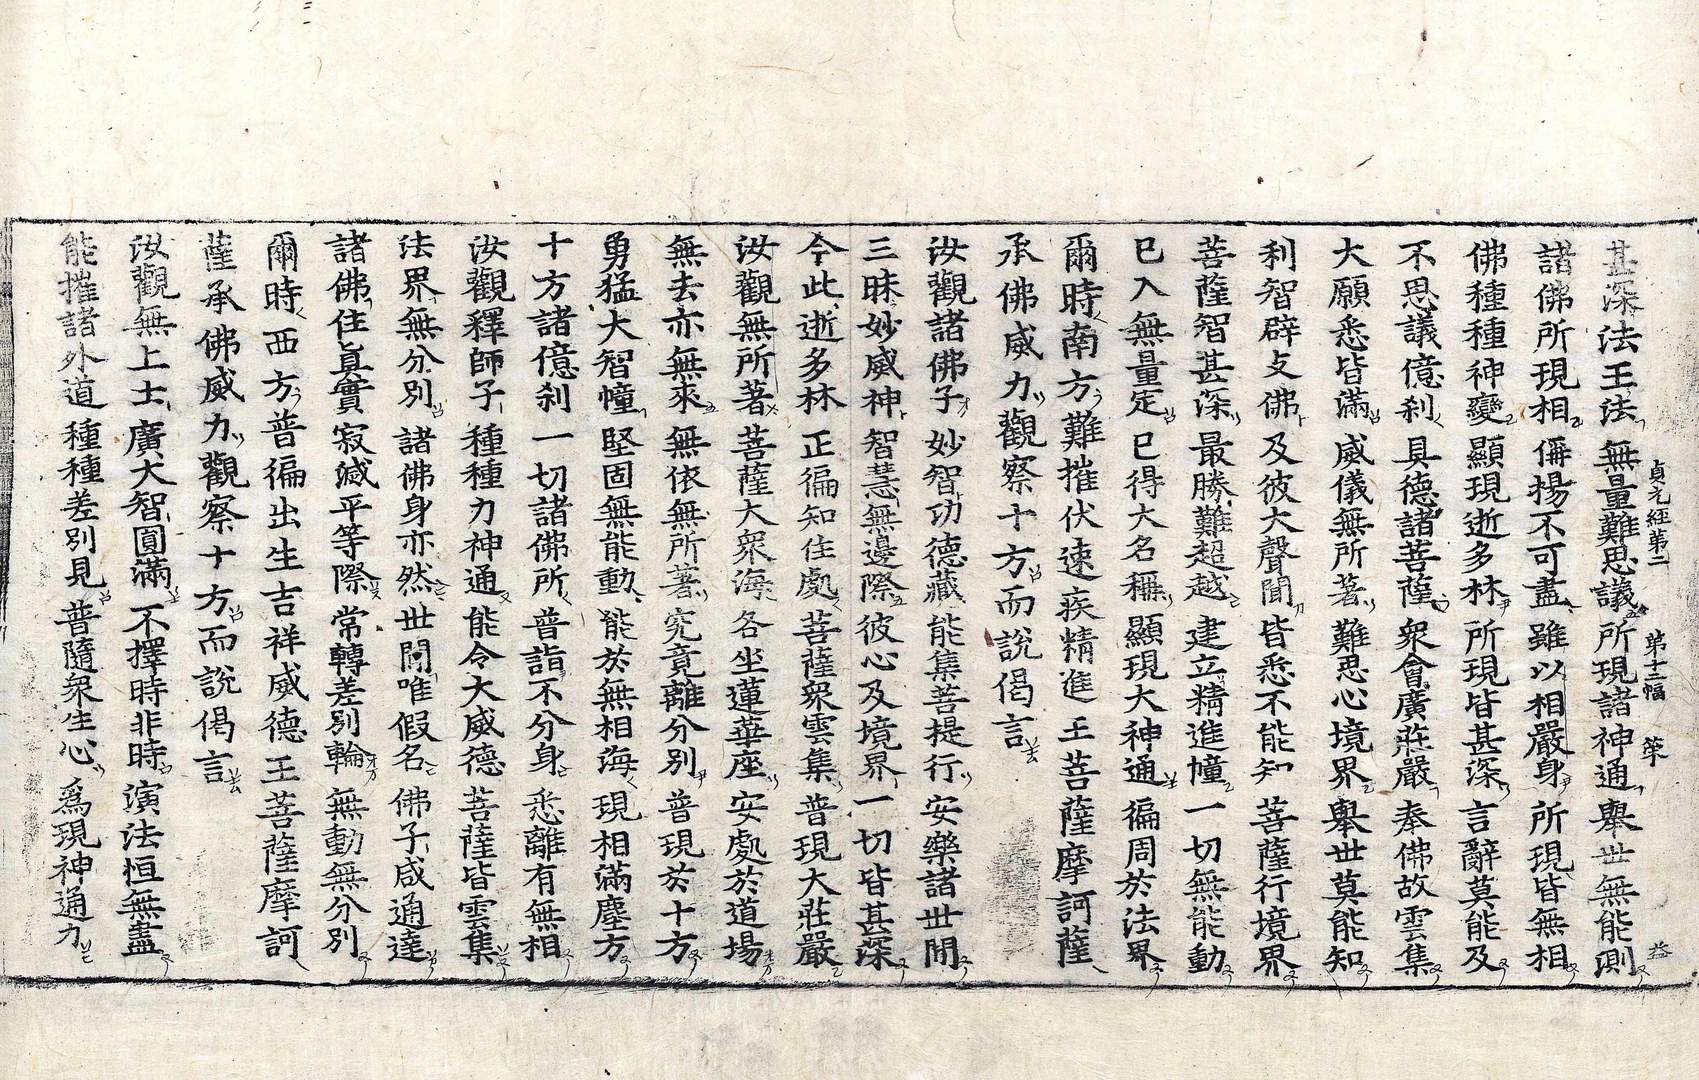 貞元經第二 第十三幅 荣
甚深法王法 無量難思議 所現諸神通 舉世無能測
諸佛所現相 偁揚不可盡 雖以相嚴身 所現皆無相
佛種種神變 顯現逝多林 所現皆甚深 言辭莫能及
不思議億刹 具德諸菩薩 衆會廣莊嚴 奉佛故雲集
大願悉皆滿 威儀無所著 難思心境界 舉世莫能知
利智辟支佛 及彼大聲聞 皆悉不能知 菩薩行境界
菩薩智甚深 最勝難超越 建立精進幢 一切無能動
已入無量定 已得大名稱 顯現大神通 徧周於法界
爾時南方難摧伏速疾精進王菩薩摩訶薩
承佛威力觀察十方而說偈言
汝觀諸佛子 妙智功德藏 能集菩提行 安樂諸世間
三昧妙威神 智慧無邊際 彼心及境界 一切皆甚深
今此逝多林 正徧知住處 菩薩衆雲集 普現大莊嚴
汝觀無所著 菩薩大衆海 各坐蓮華座 安處於道場
無去亦無來 無依無所著 究竟離分別 普現於十方
勇猛大智幢 堅固無能動 能於無相海 現相滿塵方
十方諸億刹 一切諸佛所 普詣不分身 悉離有無相
汝觀釋師子 種種力神通 能令大威德 菩薩皆雲集
法界無分別 諸佛身亦然 世間唯假名 佛子咸通達
諸佛住眞實 寂滅平等際 常轉差別輪 無動無分別
爾時西方普徧出生吉祥威德王菩薩摩訶
薩承佛威力觀察十方而說偈言
汝觀無上士 廣大智圓滿 不擇時非時 演法恒無盡
能摧諸外道 種種差別見 普隨衆生心 爲現神通力